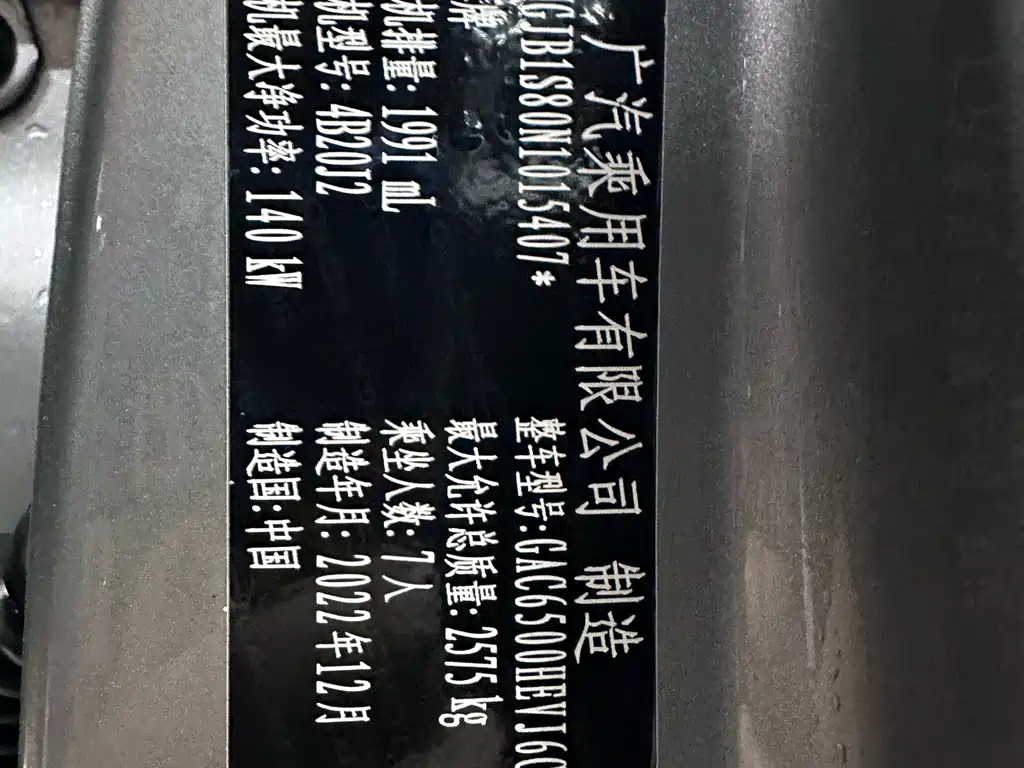 广汽乘用车有限公司 制造
GTB1S80N1015407*
整车型号:GAC6500HEVJ6
牌
最大允许总质量:2575kg
机排量:1991 mL
乘坐人数:7人
机型号:4B20J2
制造年月:2022年12月
机最大净功率:140kW
制造国:中国